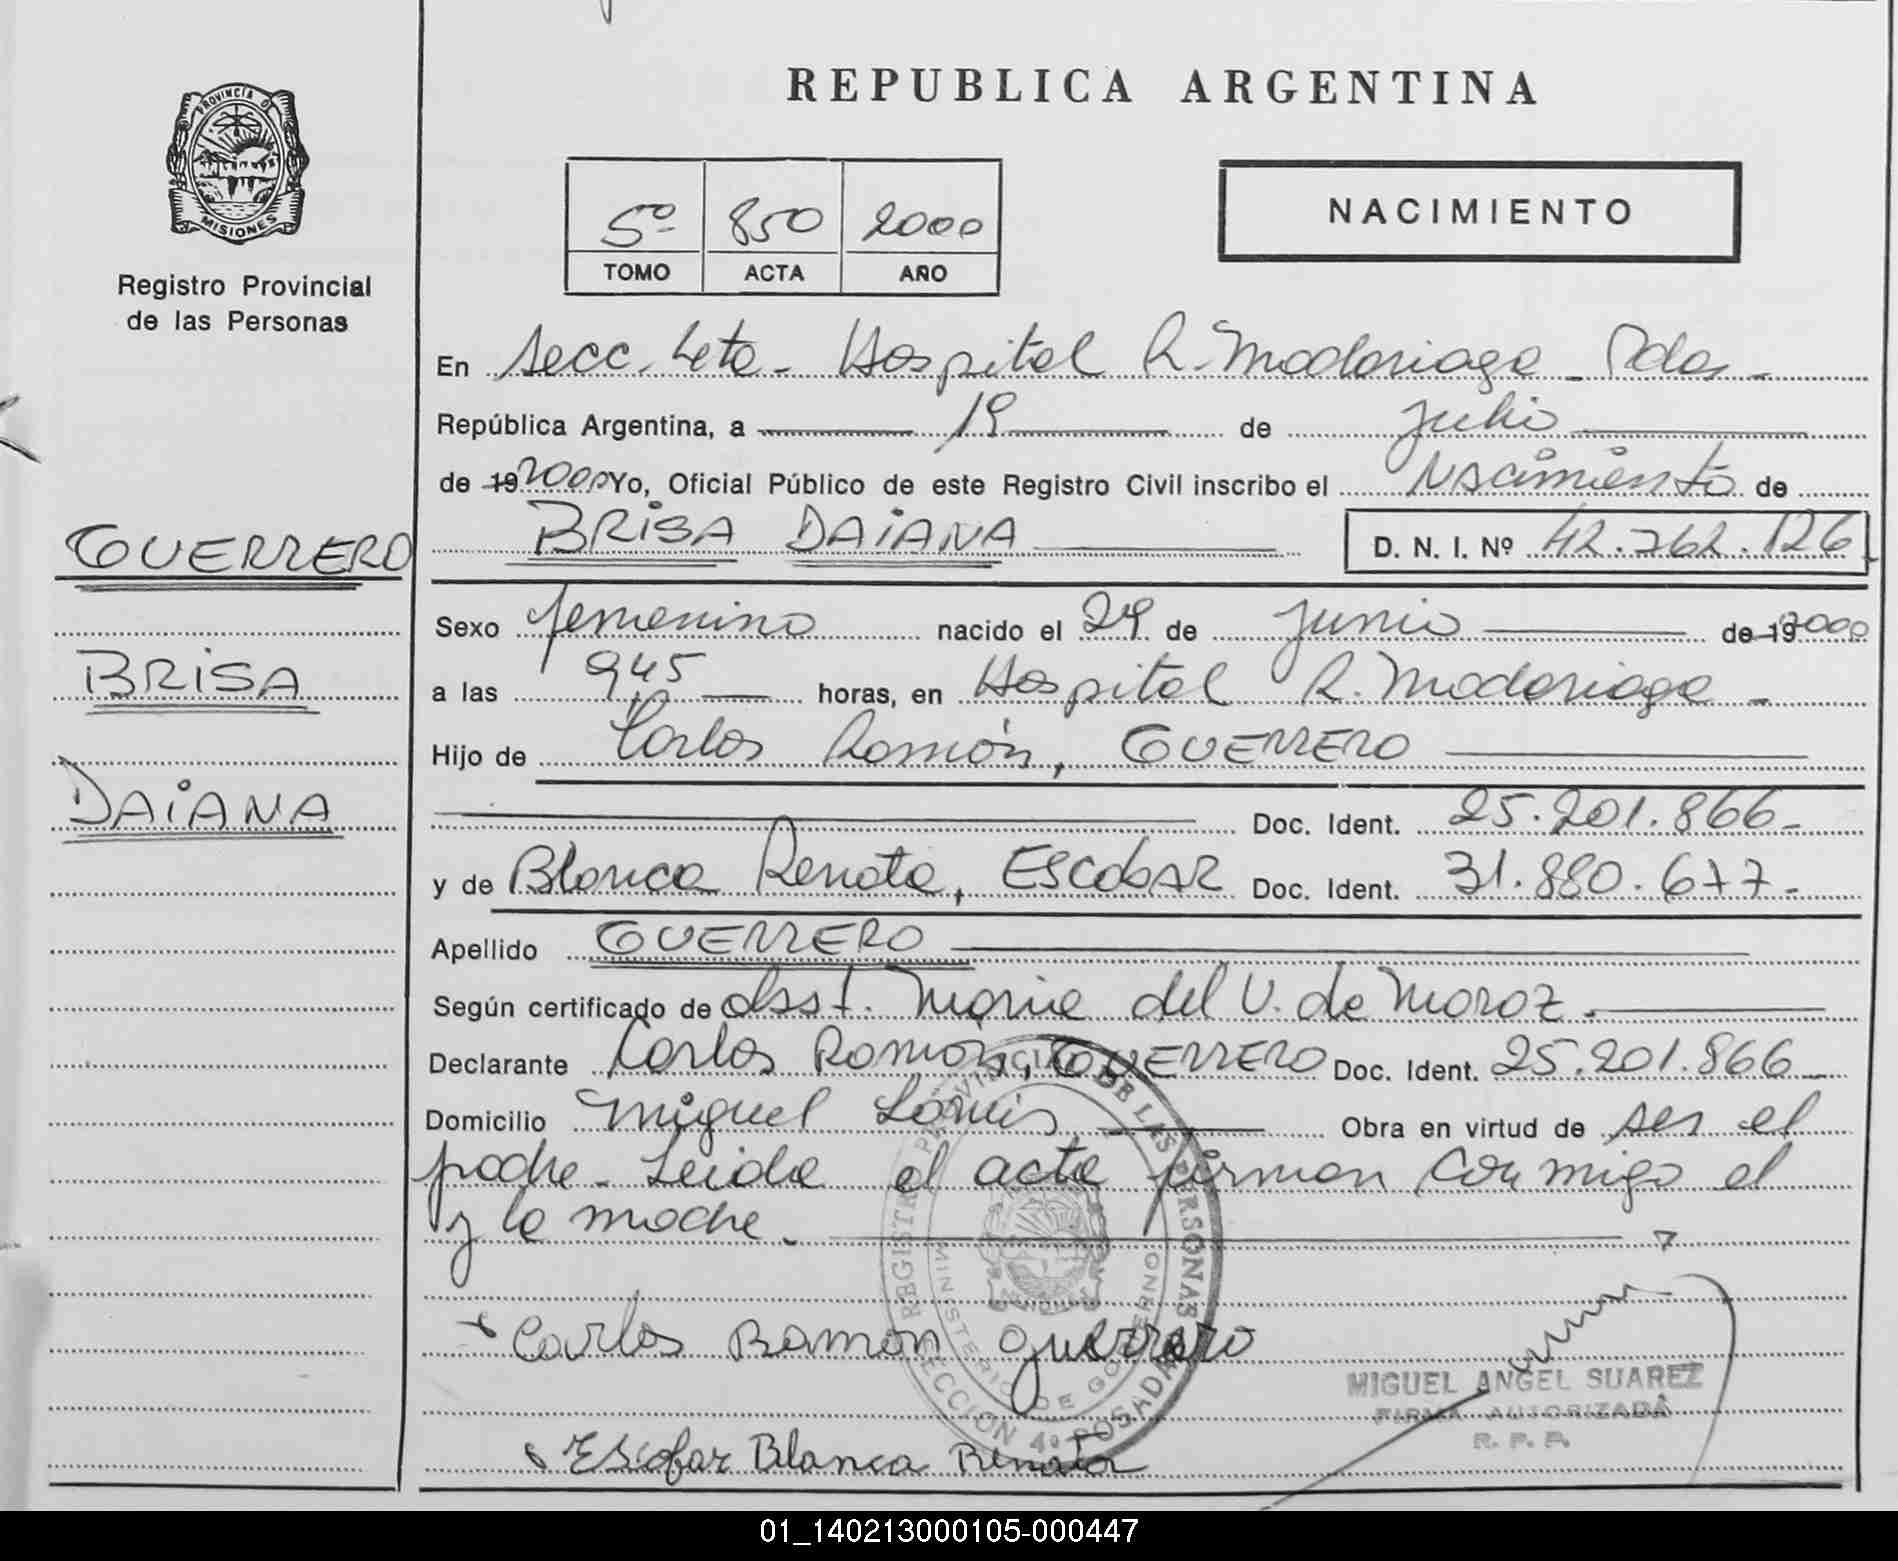 REPUBLICA ARGENTINA
PROVINCIA D
MISIONES
Registro Provincial
de las Personas
5º 850 2000
TOMO ACTA AÑO
NACIMIENTO
En Secc. 4ta - Hospital R. Madariaga - Pdas -
República Argentina, a 19 de Julio
de 19 2000 Yo, Oficial Público de este Registro Civil inscribo el Nacimiento de
BRISA DAIANA D. N. I. Nº 42.762.126
GUERRERO
BRISA
DAIANA
Sexo femenino nacido el 29 de Junio de 19 2000
a las 945 horas, en Hospital R. Madariaga -
Hijo de Carlos Ramón, GUERRERO
Doc. Ident. 25.201.866-
y de Blanca Renata, ESCOBAR Doc. Ident. 31.880.677-
Apellido GUERRERO
Según certificado de Obst. Maria del V. de Moroz.
Declarante Carlos Ramón, GUERRERO Doc. Ident. 25.201.866
Domicilio Miguel Lanús Obra en virtud de ser el
padre - Leida el acta firman conmigo el
y la madre.
Carlos Ramon Guerrero
Escobar Blanca Renata
REGISTRO PROVINCIAL DE LAS PERSONAS
MINISTERIO DE GOBIERNO
SECCION 4º POSADAS
MIGUEL ANGEL SUAREZ
FIRMA AUTORIZADA
R. P. P.
01_140213000105-000447